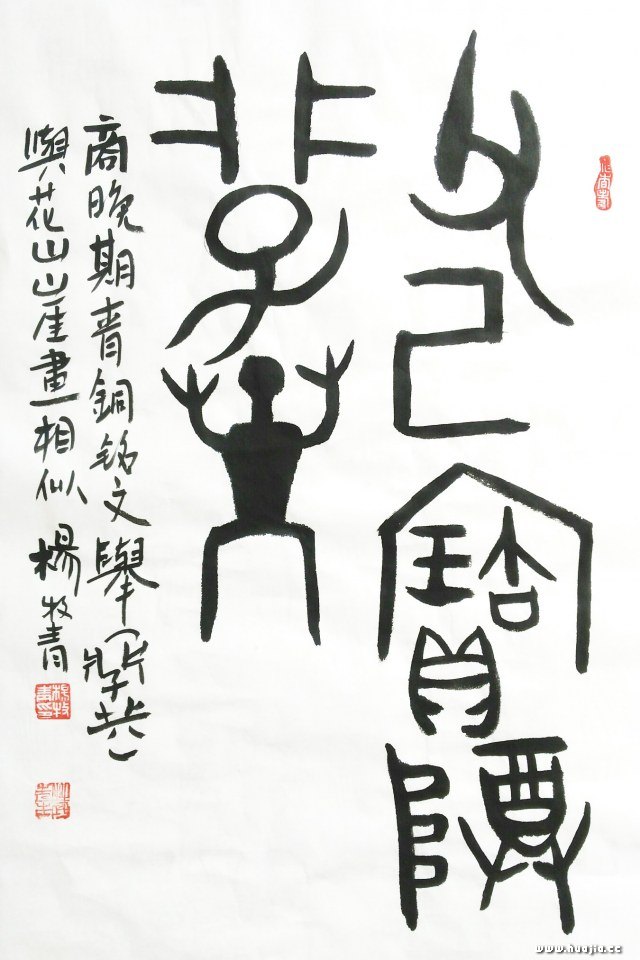 父己寶尊
商晚期青銅铭文舉
與花山崖畫相似 楊牧青
www.huajia.cc